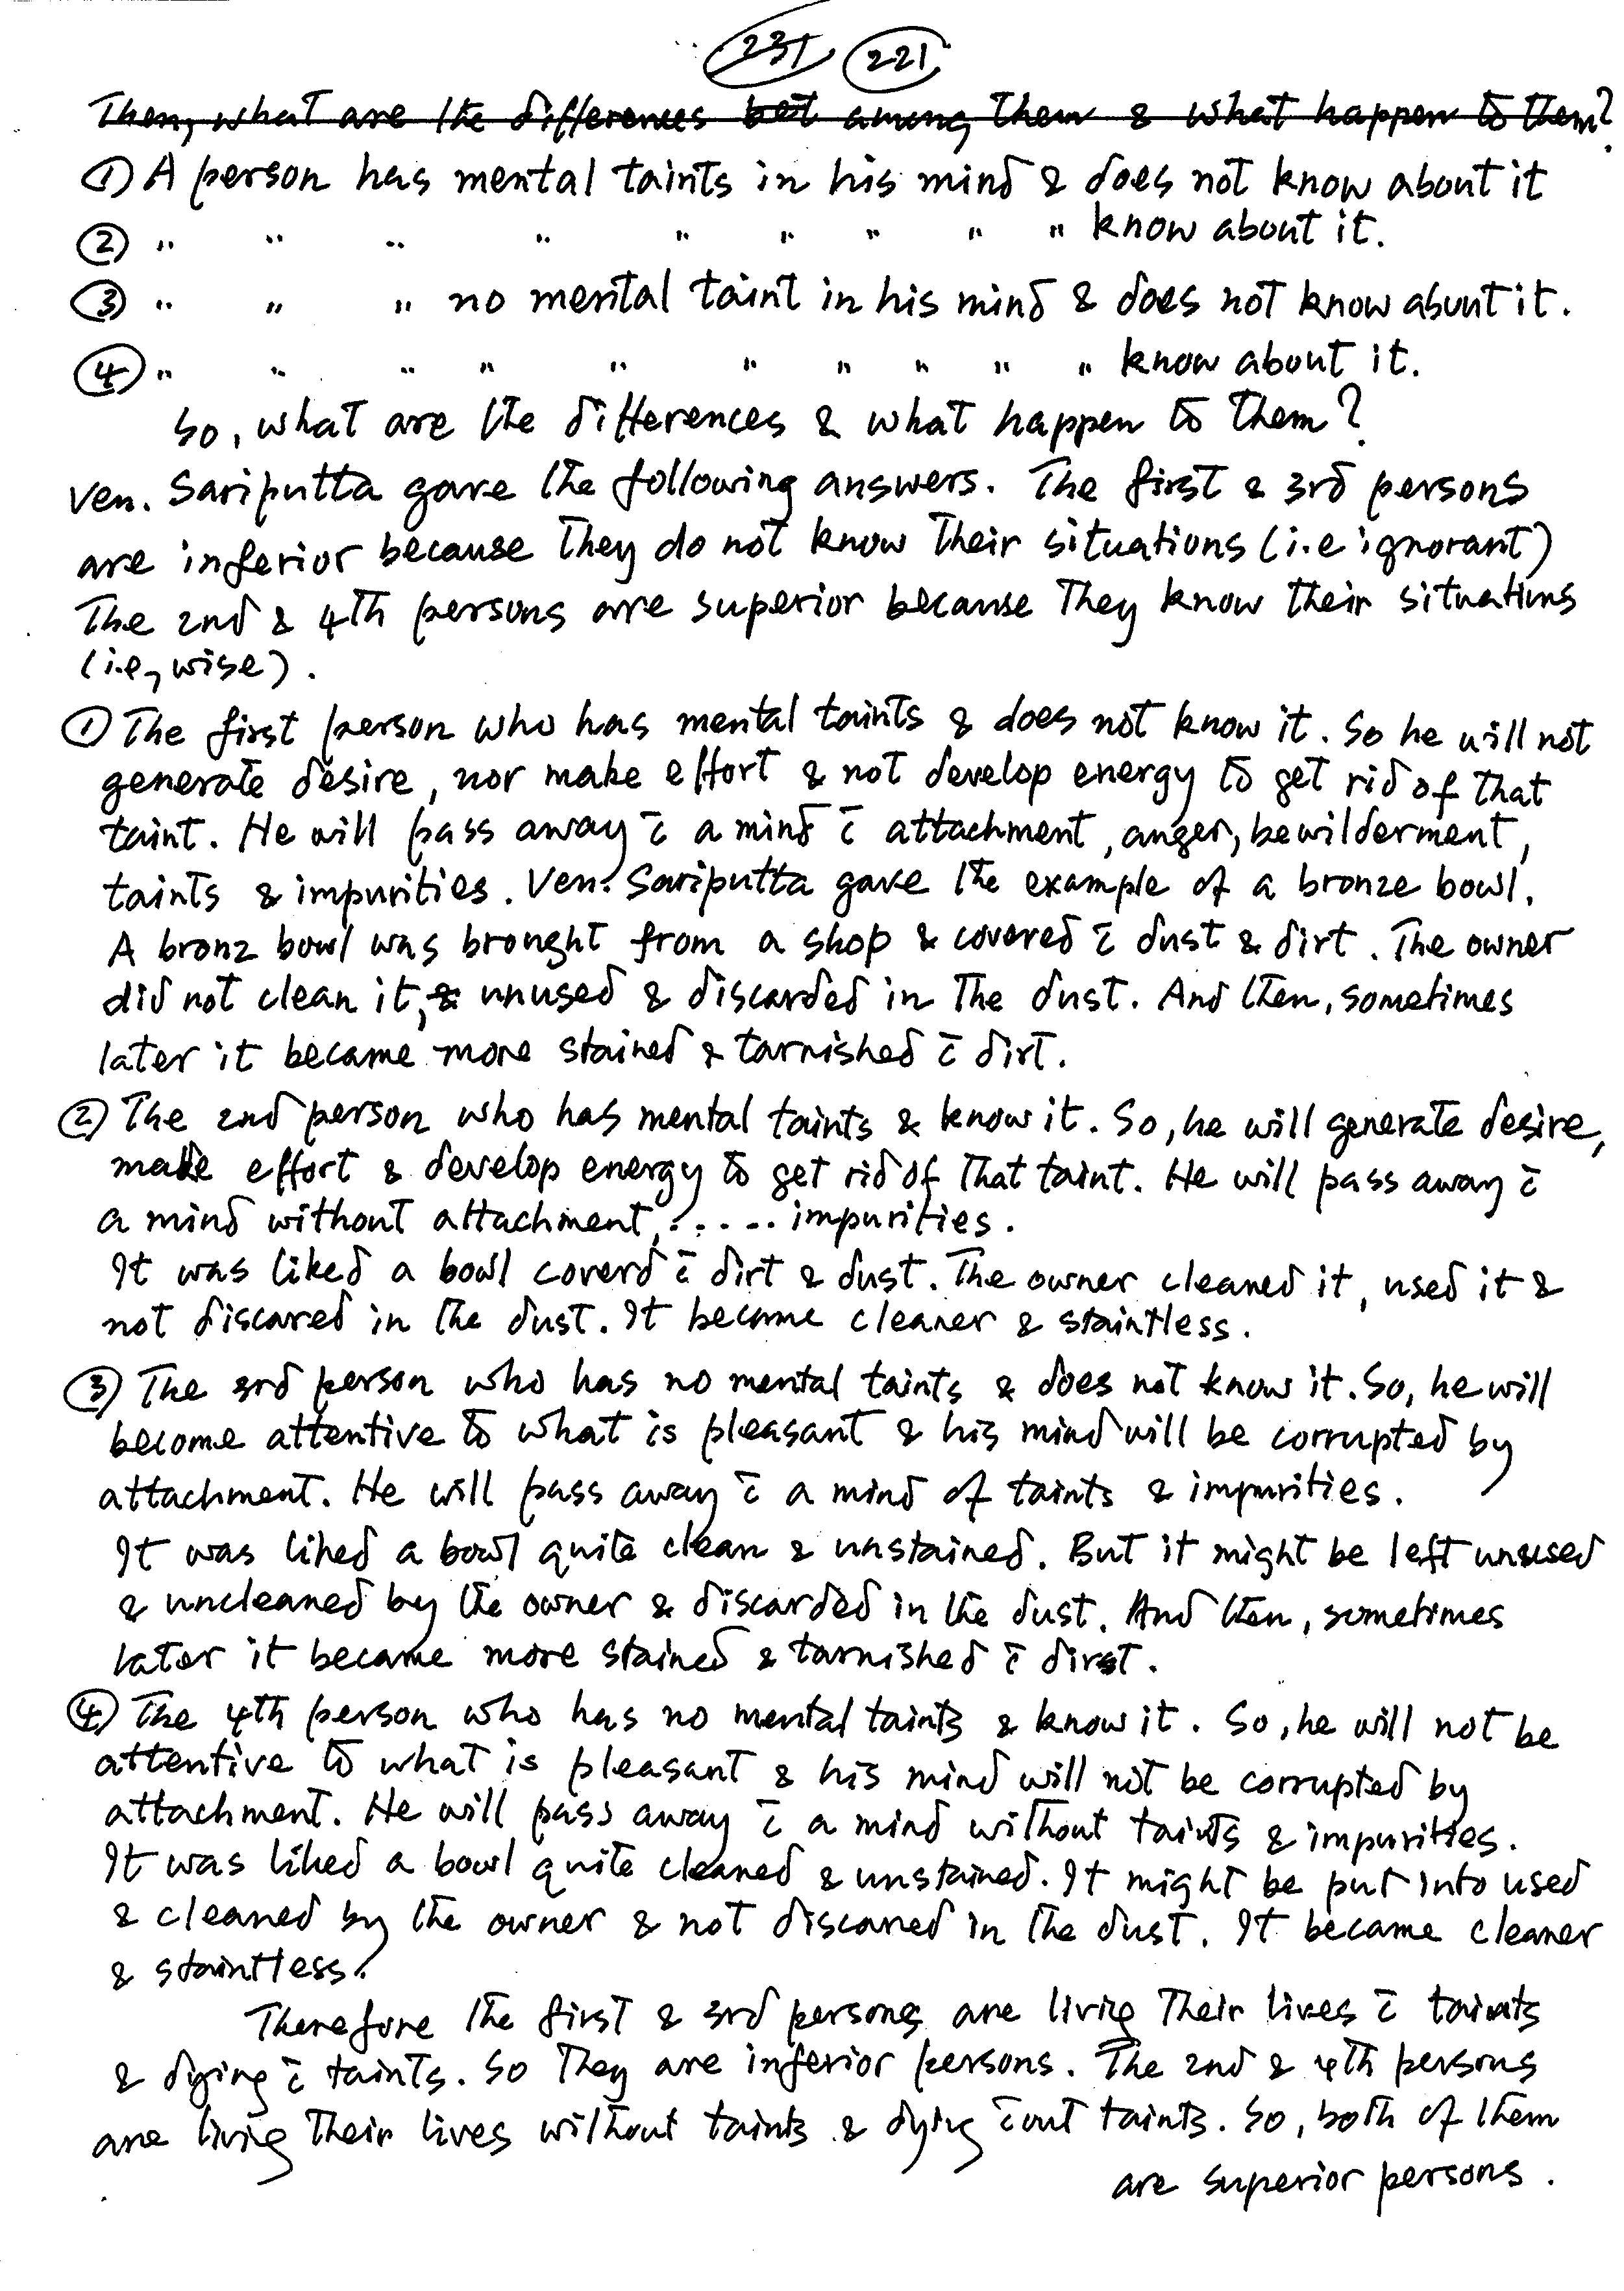 231 221
Then, what are the differences bet among them & what happen to them?
① A person has mental taints in his mind & does not know about it
② " " " " " " " " " know about it.
③ " " " no mental taint in his mind & does not know about it.
④ " " " " " " " " " " know about it.
So, what are the differences & what happen to them?
Ven. Sariputta gave the following answers. The first & 3rd persons
are inferior because they do not know their situations (i.e ignorant)
The 2nd & 4th persons are superior because they know their situations
(i.e, wise).
① The first person who has mental taints & does not know it. So he will not
generate desire, nor make effort & not develop energy to get rid of that
taint. He will pass away c̄ a mind c̄ attachment, anger, bewilderment,
taints & impurities. Ven. Sariputta gave the example of a bronze bowl.
A bronz bowl was brought from a shop & covered c̄ dust & dirt. The owner
did not clean it, & unused & discarded in the dust. And then, sometimes
later it became more stained & tarnished c̄ dirt.
② The 2nd person who has mental taints & know it. So, he will generate desire,
make effort & develop energy to get rid of that taint. He will pass away c̄
a mind without attachment, ..... impurities.
It was liked a bowl coverd c̄ dirt & dust. The owner cleaned it, used it &
not discared in the dust. It became cleaner & staintless.
③ The 3rd person who has no mental taints & does not know it. So, he will
become attentive to what is pleasant & his mind will be corrupted by
attachment. He will pass away c̄ a mind of taints & impurities.
It was liked a bowl quite clean & unstained. But it might be left unused
& uncleaned by the owner & discarded in the dust. And then, sometimes
later it became more stained & tarnished c̄ dirt.
④ The 4th person who has no mental taints & know it. So, he will not be
attentive to what is pleasant & his mind will not be corrupted by
attachment. He will pass away c̄ a mind without taints & impurities.
It was liked a bowl quite cleaned & unstained. It might be put into used
& cleaned by the owner & not discared in the dust. It became cleaner
& staintless.
Therefore the first & 3rd persons are living their lives c̄ taints
& dying c̄ taints. So they are inferior persons. The 2nd & 4th persons
are living their lives without taints & dying c̄out taints. So, both of them
are superior persons.